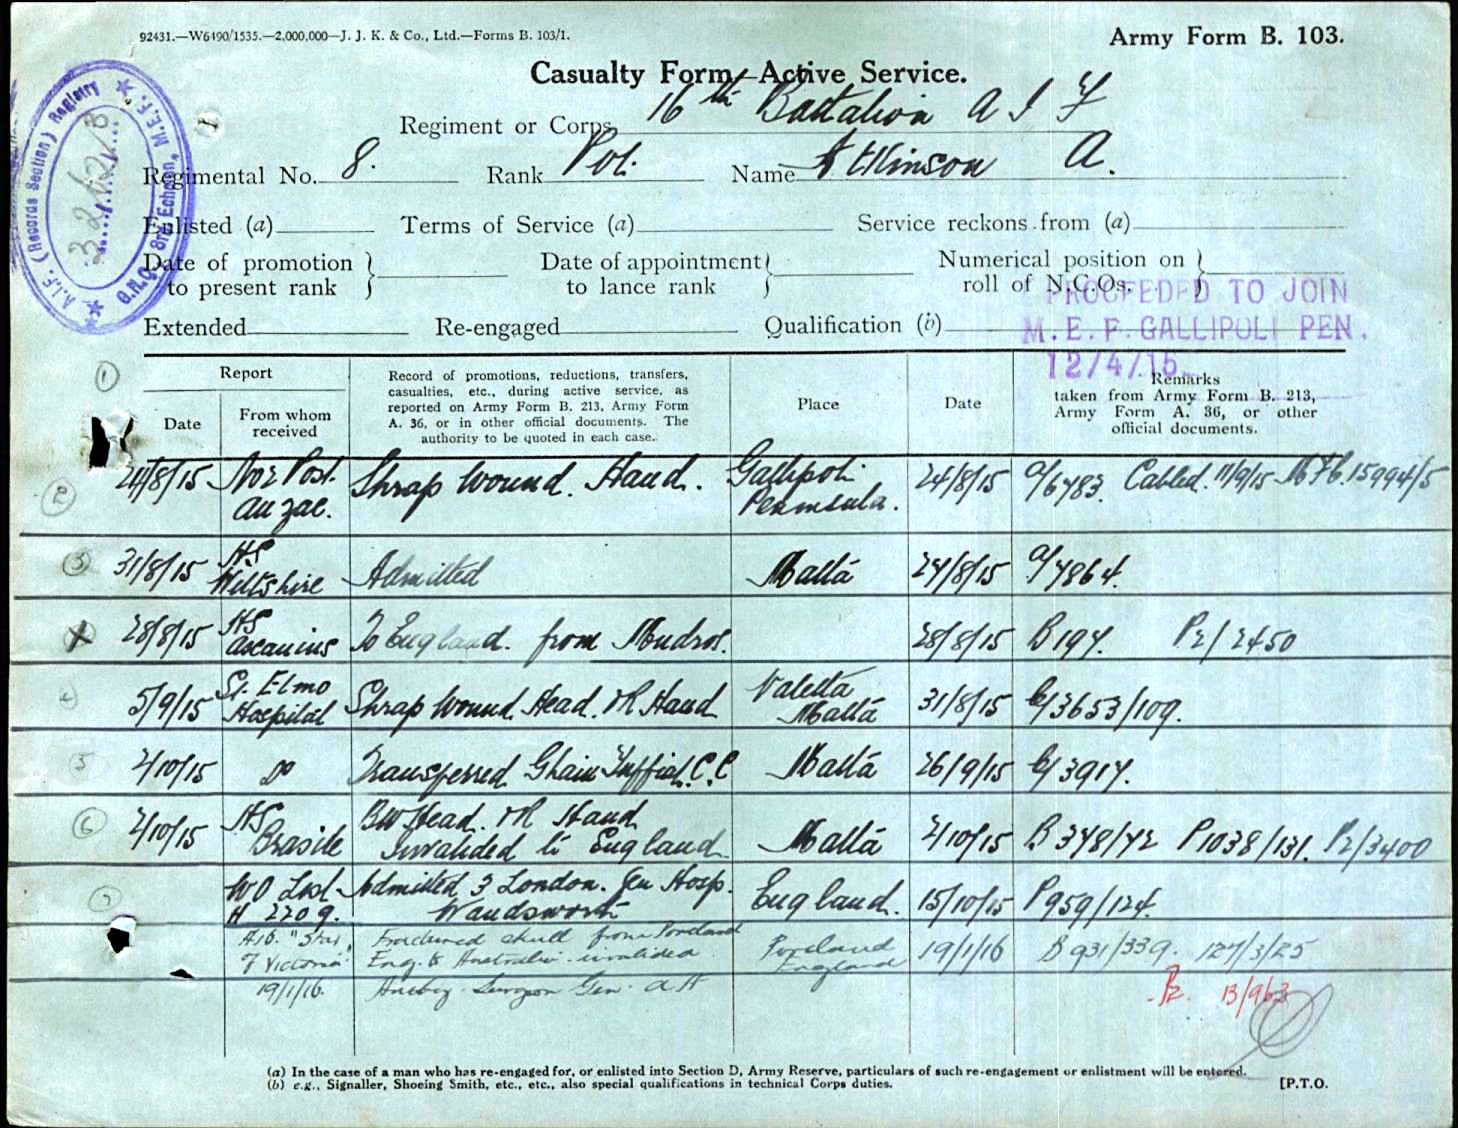 92431.—W6490/1535.—2,000,000—J. J. K. & Co., Ltd.—Forms B. 103/1.
Army Form B. 103.
Casualty Form—Active Service.
A.I.F. (Records Section) Registry
G.H.Q. 3rd Echelon, M.E.F.
Regiment or Corps 16th Battalion A I F
Regimental No. 8. Rank Pvt. Name Atkinson A.
Enlisted (a) Terms of Service (a) Service reckons from (a)
Date of promotion to present rank } Date of appointment to lance rank } Numerical position on roll of N.C.Os. }
PROCEEDED TO JOIN
M.E.F. GALLIPOLI PEN.
12/4/15
Extended Re-engaged Qualification (b)
1
Report
Date
From whom received
Record of promotions, reductions, transfers,
casualties, etc., during active service, as
reported on Army Form B. 213, Army Form
A. 36, or in other official documents. The
authority to be quoted in each case.
Place
Date
Remarks
taken from Army Form B. 213,
Army Form A. 36, or other
official documents.
2 24/8/15 No 2 Post. Shrap Wound. Hand. Gallipoli 24/8/15 Cabled. 11/9/15
Anzac. Peninsula.
3 31/8/15 HS Wiltshire Admitted Malta 24/8/15
28/8/15 HS Ascanius To England. from Mudros. 28/8/15 B 197. P2/2450
4 5/9/15 St. Elmo Hospital Shrap Wound Head. & R Hand Valetta Malta 31/8/15 G/3653/109.
5 2/10/15 do Transferred Ghain Tuffieh. C.C Malta 26/9/15 G/3917.
6 2/10/15 HS Brasile BW Head. & R Hand Malta 2/10/15 B 348/42 P1038/131. P2/3400
Invalided to England
7 WO List Admitted 3 London. Gen Hosp. England. 15/10/15 P959/124.
H 2209. Wandsworth
"Star Fractured skull from Portland Portland 19/1/16 B 931/339. 127/3/25
of Victoria" Eng. to Australia invalided England
19/1/16. Surgeon Gen. P2. B/963
(a) In the case of a man who has re-engaged for, or enlisted into Section D, Army Reserve, particulars of such re-engagement or enlistment will be entered.
(b) e.g., Signaller, Shoeing Smith, etc., etc., also special qualifications in technical Corps duties.
[P.T.O.